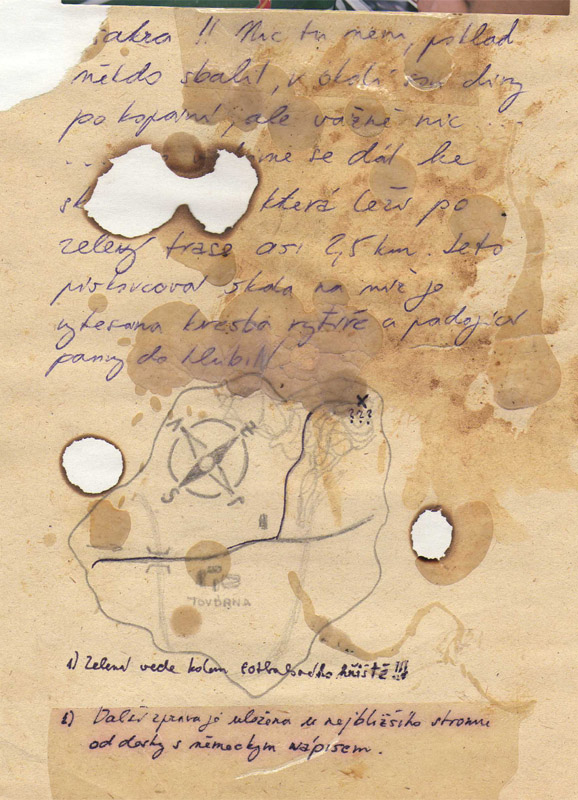 sakra !! Nic tu není, poklad
někdo sbalil, v okolí jsou díry
pokopaní, ale vážně nic ...
... me se dál ke
která leží po
zelený trase asi 2,5 km. Je to
pískovcová skála na níž je
vytesaná kresba rytíře a padající
panny do hlubin
X
???
TOVÁRNA
1) Zelená vede kolem fotbalového hřiště !!!
2) Další zpráva je uložena u nejbližšího stromu
od desky s německým nápisem.